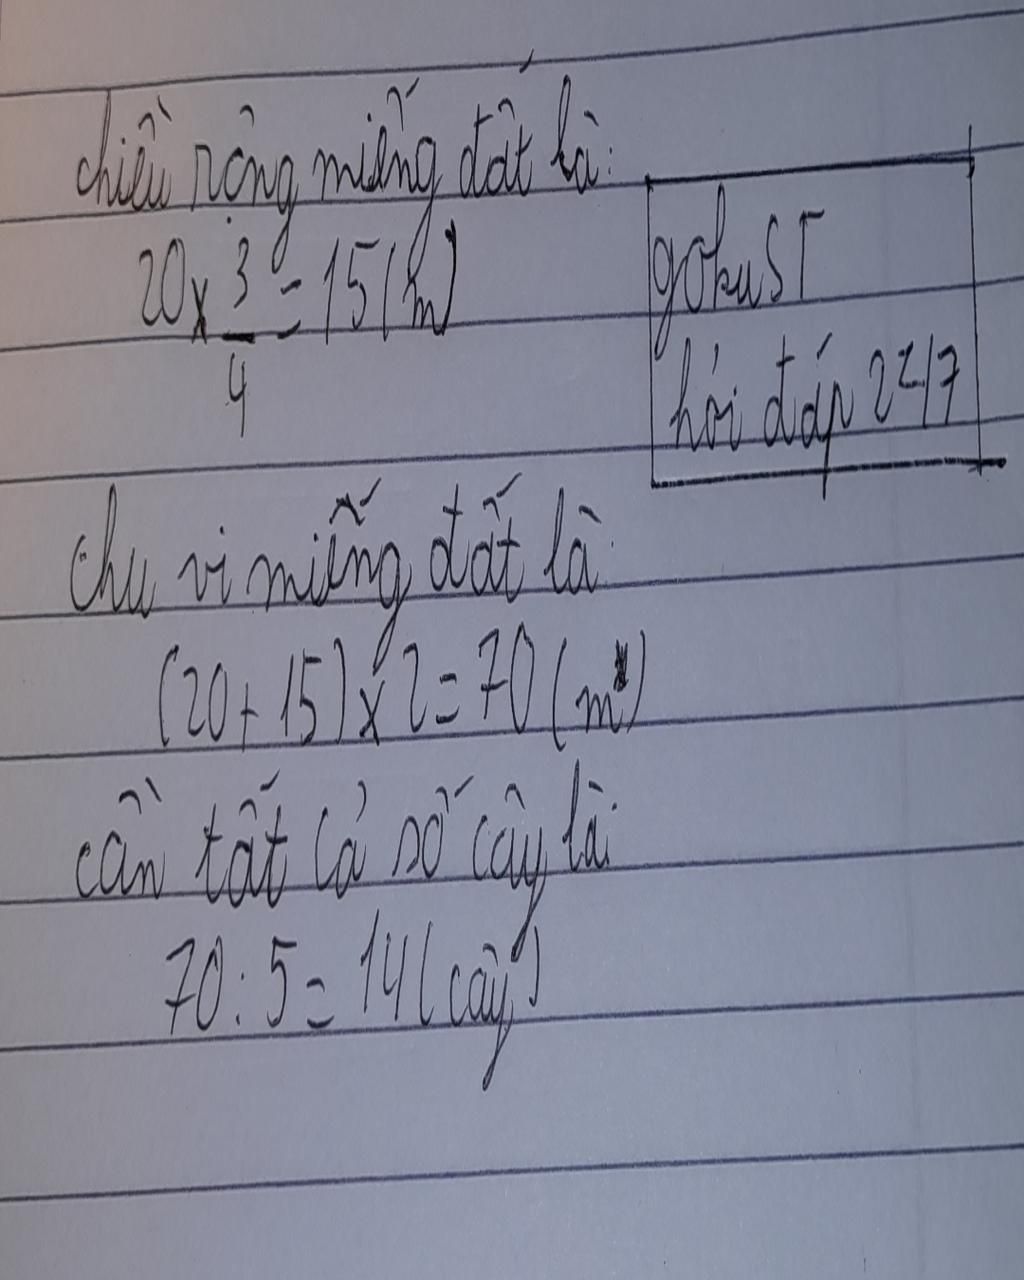 chiều rộng miếng đất là:
20 x 3/4 = 15 (m)
gokuST
hỏi đáp 247
chu vi miếng đất là:
(20 + 15) x 2 = 70 (m)
cần tất cả số cây là:
70 : 5 = 14 (cây)